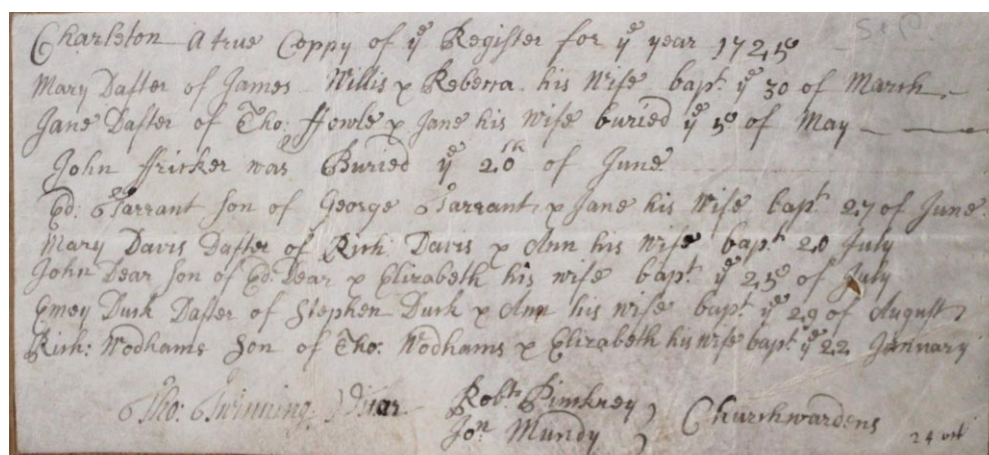 Charleton A true Coppy of ye Register for ye year 1725
Mary Dafter of James Willis & Rebecca his Wife bapt. ye 30 of March
Jane Dafter of Tho: ffowle & Jane his Wife buried ye 5 of May
John ffricker was Buried ye 20th of June
Ed: Tarrant son of George Tarrant & Jane his Wife bapt. 27 of June
Mary Davis Dafter of Rich: Davis & Ann his Wife bapt. 20 July
John Dear son of Ed: Dear & Elizabeth his wife bapt. ye 25 of July
Emey Dusk Dafter of Stephen Dusk & Ann his wife bapt. ye 29 of August
Rich: Wodhams Son of Tho: Wodhams & Elizabeth his Wife bapt. ye 22 January
Tho: Twinning Vicar
Robt. Pinkney
Jon. Mundy
Churchwardens
24